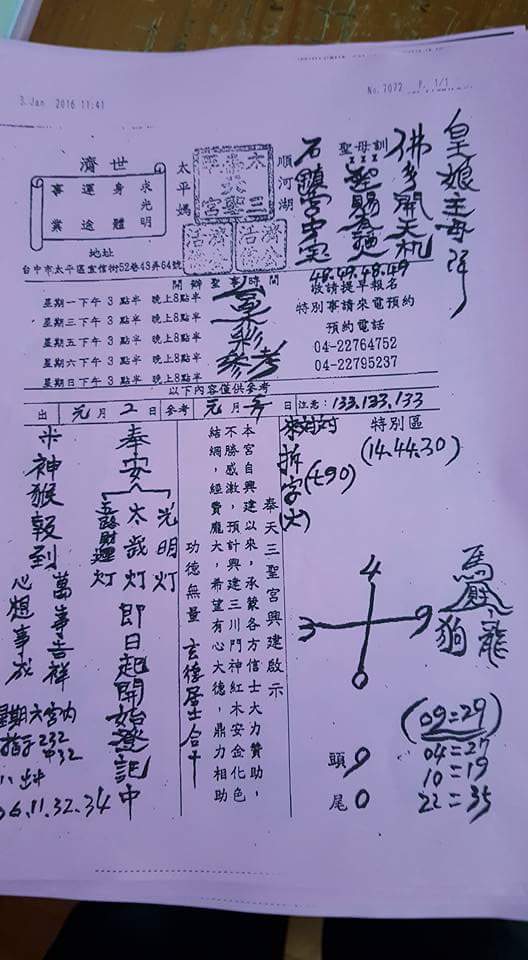 3 Jan 2016 11:41
No. 7072 P. 1/1
皇娘主母降
佛多開天机
聖母訓
聖賜
石鎮宮中宝
48.49.48.49
順河湖
太平媽
木柵奉天三聖宮
濟公活佛
濟世
求光明
身體
運途
事業
地址
台中市太平區宜信街52巷43弄64號
開辦聖事時間
星期一下午 3 點半 晚上8點半
星期三下午 3 點半 晚上8點半
星期五下午 3 點半 晚上8點半
星期六下午 3 點半 晚上8點半
星期日下午 3 點半 晚上8點半
六合彩參考
敬請提早報名
特別事請來電預約
預約電話
04-22764752
04-22795237
以下內容僅供參考
出 元 月 2 日 參考 元 月 日 注意: 133.133.133
特別區
(14.44.30)
拆字(火)
(七90)
奉天三聖宮興建啟示
本宮自興建以來，承蒙各方信士大力贊助，
不勝感激，預計興建三川門神紅木安金化色
結網，經費龐大，希望有心大德，鼎力相助
功德無量 玄德居士合十
奉安
光明灯
太歲灯
五路財神灯
即日起開始登記中
米神猴報到
萬事吉祥
心想事成
星期六宮內
指示232
中32
06.11.32.34
4
3 9
0
馬
龍
狗
頭 9
尾 0
(09=29)
04=27
10=19
22=35